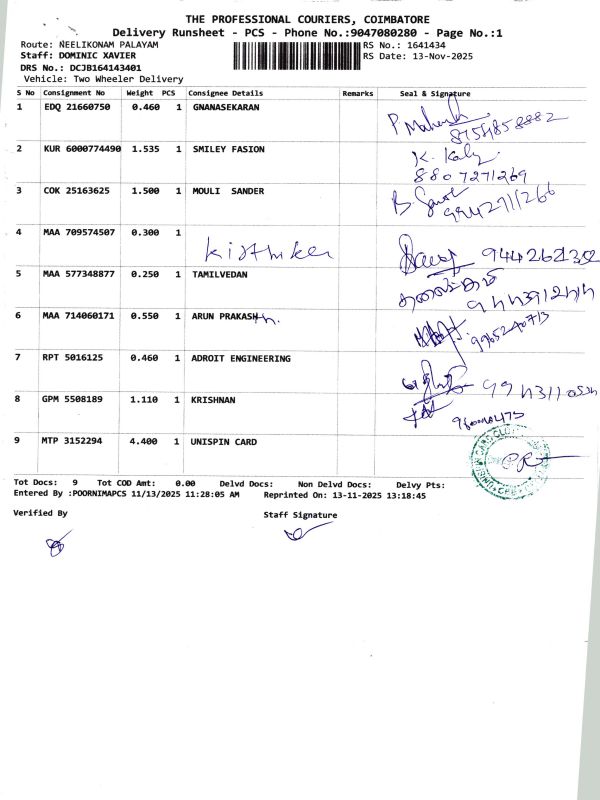 THE PROFESSIONAL COURIERS, COIMBATORE
Delivery Runsheet - PCS - Phone No.:9047080280 - Page No.:1
Route: NEELIKONAM PALAYAM
RS No.: 1641434
Staff: DOMINIC XAVIER
RS Date: 13-Nov-2025
DRS No.: DCJB164143401
Vehicle: Two Wheeler Delivery
S No Consignment No Weight PCS Consignee Details Remarks Seal & Signature
1 EDQ 21660750 0.460 1 GNANASEKARAN
P Mahesh
8754858882
2 KUR 6000774490 1.535 1 SMILEY FASION
K. Kaly
8807271269
3 COK 25163625 1.500 1 MOULI SANDER
4 MAA 709574507 0.300 1
5 MAA 577348877 0.250 1 TAMILVEDAN
6 MAA 714060171 0.550 1 ARUN PRAKASH
7 RPT 5016125 0.460 1 ADROIT ENGINEERING
8 GPM 5508189 1.110 1 KRISHNAN
9 MTP 3152294 4.400 1 UNISPIN CARD
Tot Docs: 9 Tot COD Amt: 0.00 Delvd Docs: Non Delvd Docs: Delvy Pts:
Entered By :POORNIMAPCS 11/13/2025 11:28:05 AM Reprinted On: 13-11-2025 13:18:45
Verified By Staff Signature